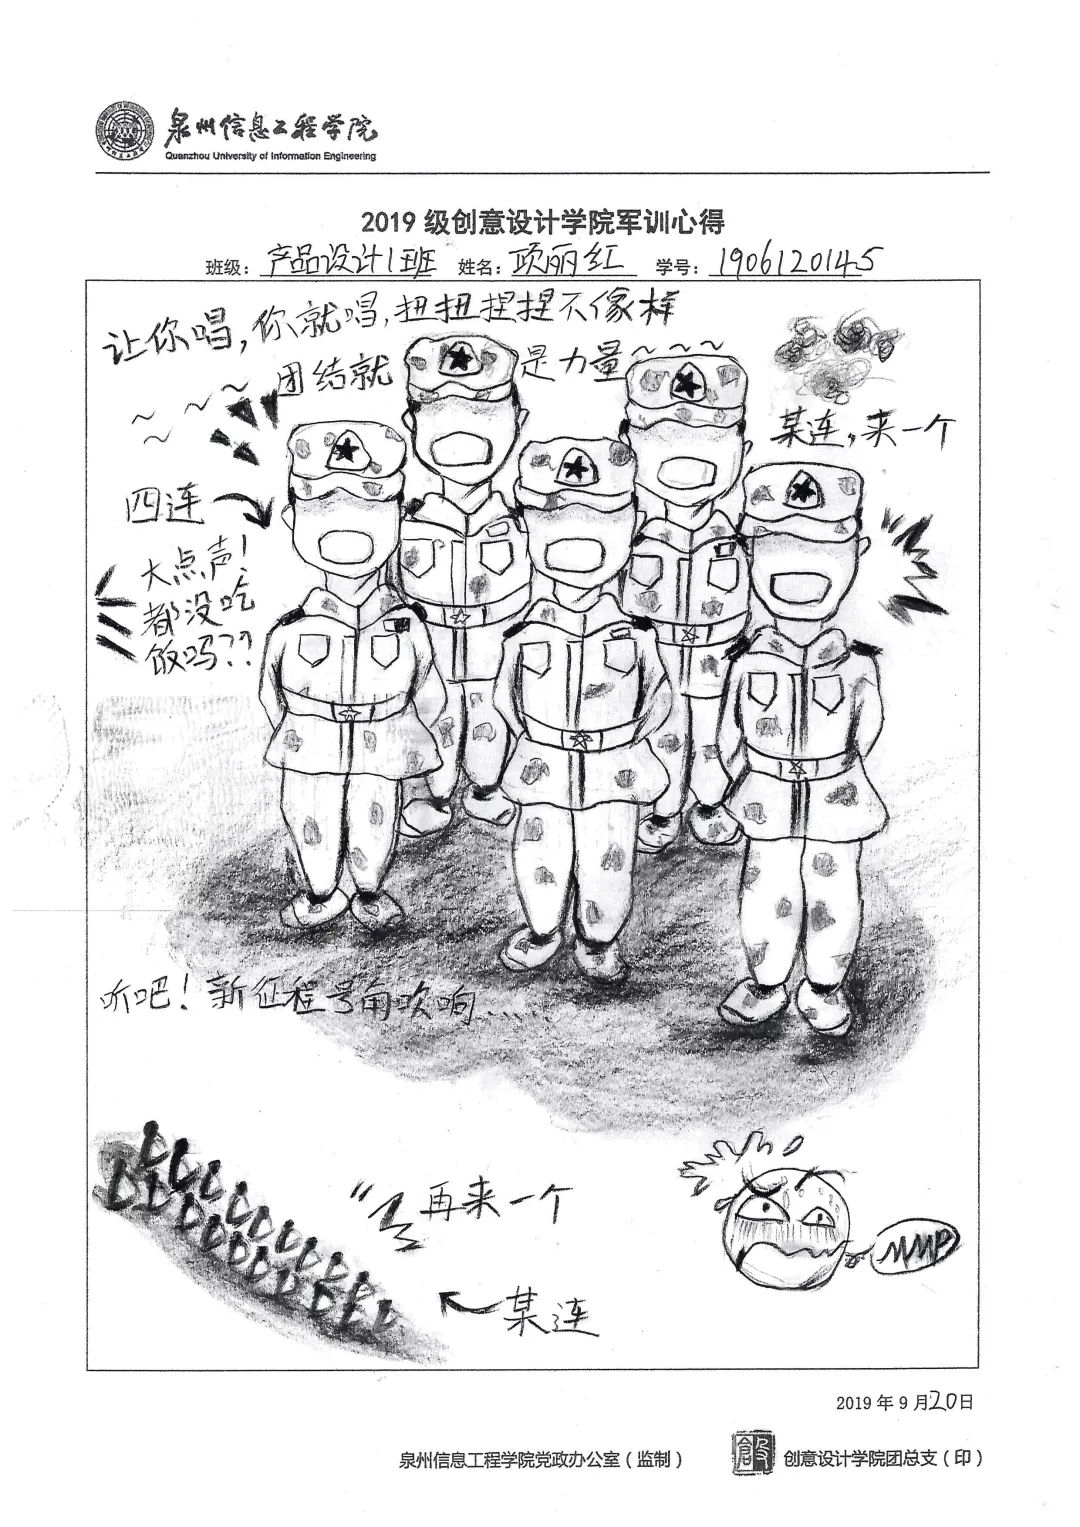 泉州信息工程学院
Quanzhou University of Information Engineering
2019 级创意设计学院军训心得
班级：产品设计1班 姓名：项丽红 学号：1906120145
让你唱，你就唱，扭扭捏捏不像样
团结就是力量~~~
某连，来一个
四连
大点声！
都没吃
饭吗??
听吧！新征程号角吹响......
再来一个
MMP
某连
2019 年 9 月20日
泉州信息工程学院党政办公室（监制）
创意设计学院团总支（印）